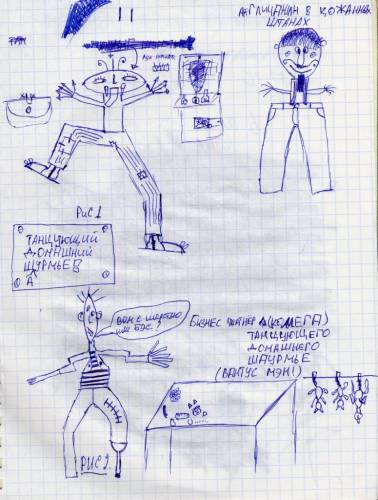 АНГЛИЧАНИН В КОЖАННЫХ
ШТАНАХ
РИС 1
ТАНЦУЮЩИЙ
ДОМАШНИЙ
ШУРМЬЕВ
А
ВАМ С ШЕРСТЬЮ
ИЛИ БЕС?
БИЗНЕС ПАРТНЕР А(КОЛЛЕГА)
ТАНЦУЮЩЕГО
ДОМАШНЕГО
ШАУРМЬЕ
(ВАКТУС МЭН!)
РИС 2.